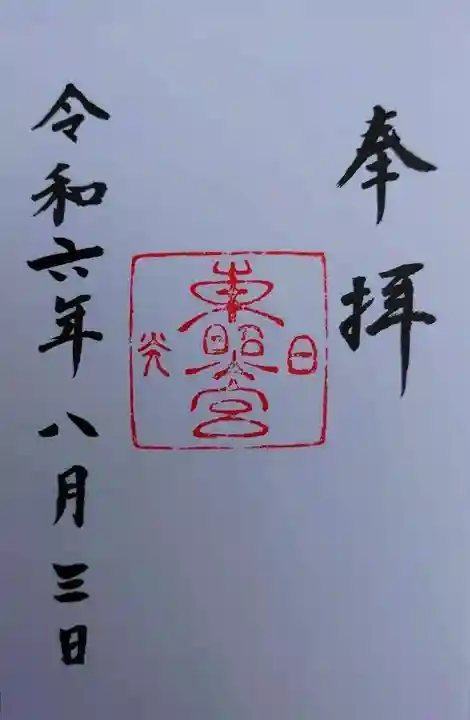 奉拝
日
東照宮
光
令和六年八月三日